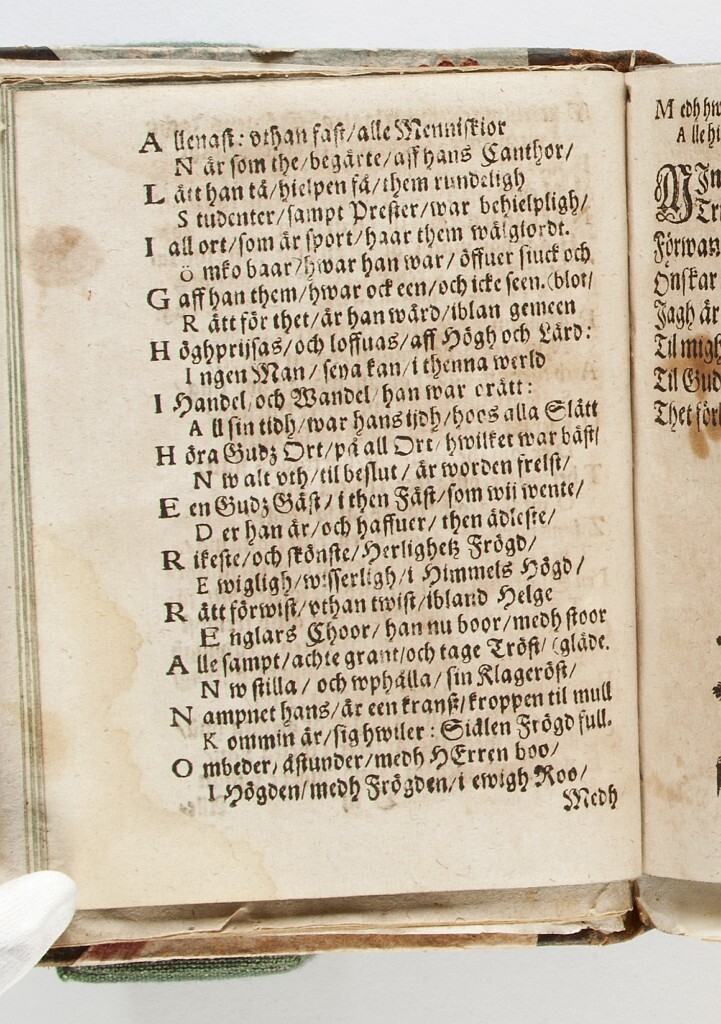 A llenast: vthan fast/alle Menniskior
N är som the/begärte/aff hans Canthor/
L ätt han tå/hielpen få/them rundeligh
S tudenter/sampt Prester/war behielpligh/
I all ort/som är sport/haar them wälgiordt.
ö mko baar/hwar han war/öffuer siuck och
G aff han them/hwar ock een/och icke seen.(blot/
R ätt för thet/är han wärd/iblan gemeen
H öghprijsas/och loffuas/aff Högh och Lärd:
I ngen Man/seya kan/i thenna werld
I Handel/och Wandel/han war orätt:
A ll sin tidh/war hans ijdh/hoos alla Slätt
H öra Gudz Ort/på all Ort/hwilket war bäst/
N w alt vth/til beslut/är worden frelst/
E en Gudz Gäst/i then Fäst/som wij wente/
D er han är/och haffuer/then ädleste/
R ikeste/och skönste/Herlighetz Frögd/
E wigligh/wisserligh/i Himmels Högd/
R ätt förwist/vthan twist/ibland Helge
E nglars Choor/han nu boor/medh stoor
A lle sampt/achte grant/och tage Tröst/(gläde.
N w stilla/och wphålla/sin Klageröst/
N ampnet hans/är een krantz/kroppen til mull
K ommin är/sigh hwiler: Siälen Frögd full.
O mbeder/åstunder/medh HErren boo/
I Högden/medh Frögden/i ewigh Roo/
Medh
M edh hw
A lle hi
MIn
Tr
Förwan
Önskar
Jagh är
Til migh
Til Gud
Thet förl